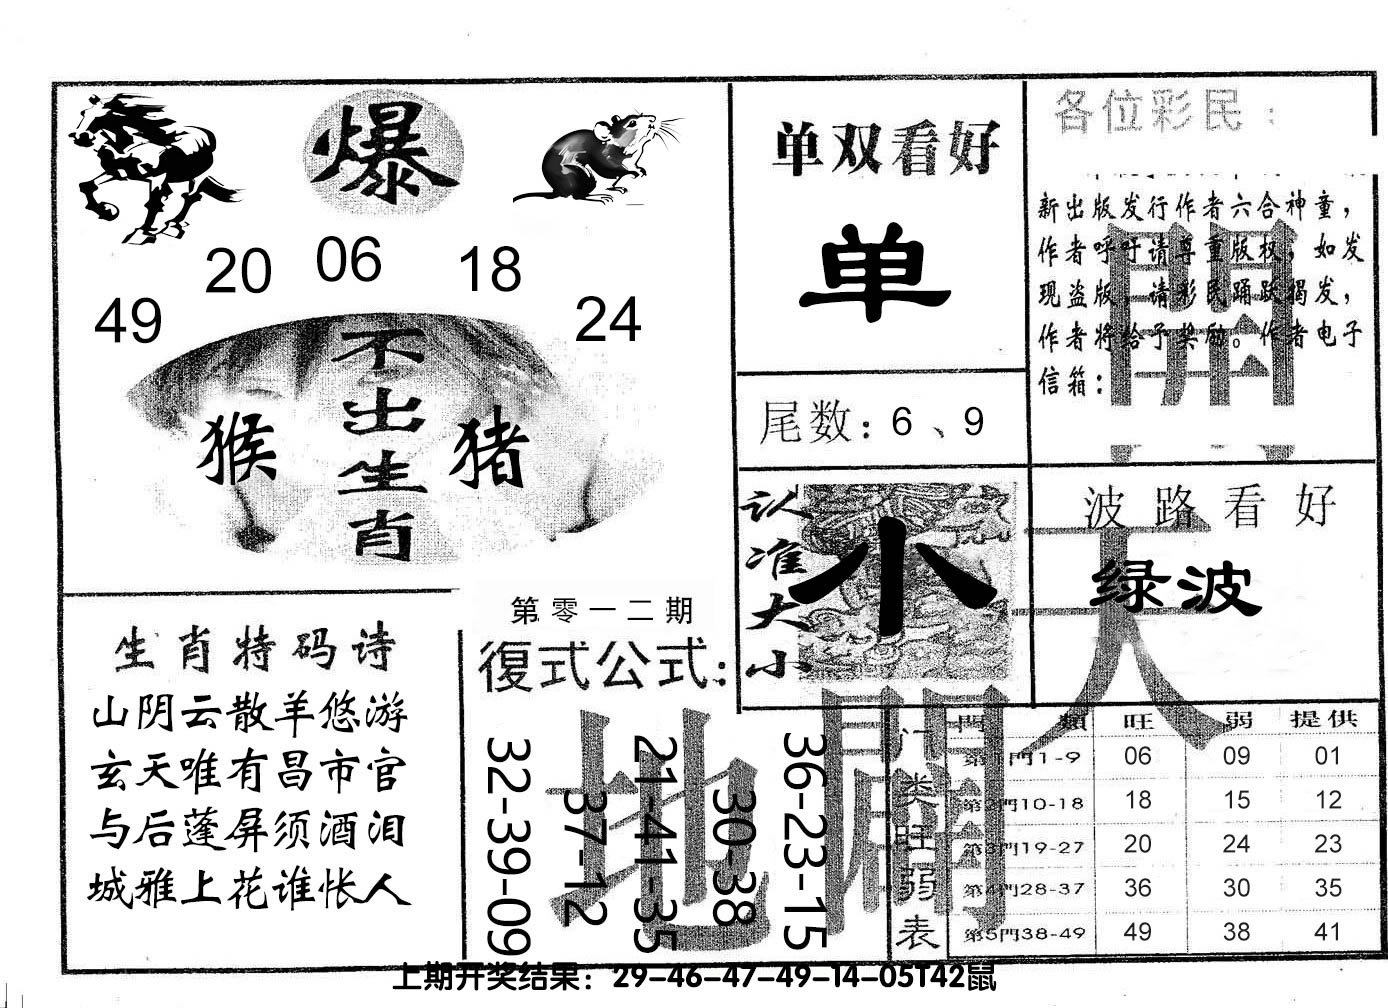 爆
20 06 18
49 24
不出生肖
猴 猪
单双看好
单
尾数：6、9
各位彩民：
新出版发行作者六合神童，
作者呼吁请尊重版权，如发
现盗版，请彩民踊跃揭发，
作者将给予奖励。作者电子
信箱：
開
认准大小
小
波路看好
绿波
天
生肖特码诗
山阴云散羊悠游
玄天唯有昌市官
与后蓬屏须酒泪
城雅上花谁怅人
第零一二期
復式公式：
32-39-09
37-12
21-41-35
30-38
36-23-15
地
門类旺弱表
門類 旺 弱 提供
第1門1-9 06 09 01
第2門10-18 18 15 12
第3門19-27 20 24 23
第4門28-37 36 30 35
第5門38-49 49 38 41
上期开奖结果：29-46-47-49-14-05T42鼠